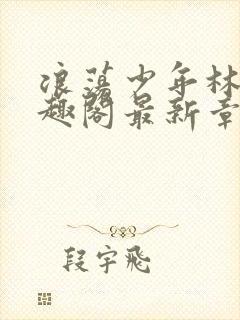 浪荡少年林
趣阁最新章
段宇飞